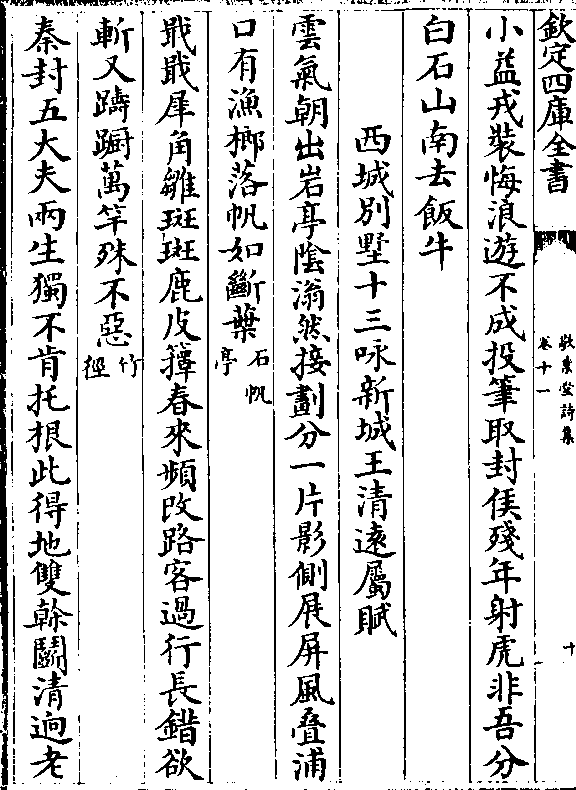 欽定四庫全書
敬業堂詩集
卷十一
十
小益戎裝悔浪遊不成投筆取封侯殘年射虎非吾分
白石山南去飯牛
西城別墅十三咏新城王清遠屬賦
雲氣朝出岩亭陰滃然接劃分一片影側展屏風疊浦
口有漁榔落帆如斷葉石帆亭
戢戢犀角雛斑斑鹿皮籜春來頻改路客過行長錯欲
斬又躊躕萬竿殊不惡竹徑
秦封五大夫兩生獨不肯托根此得地雙榦鬭清逈老